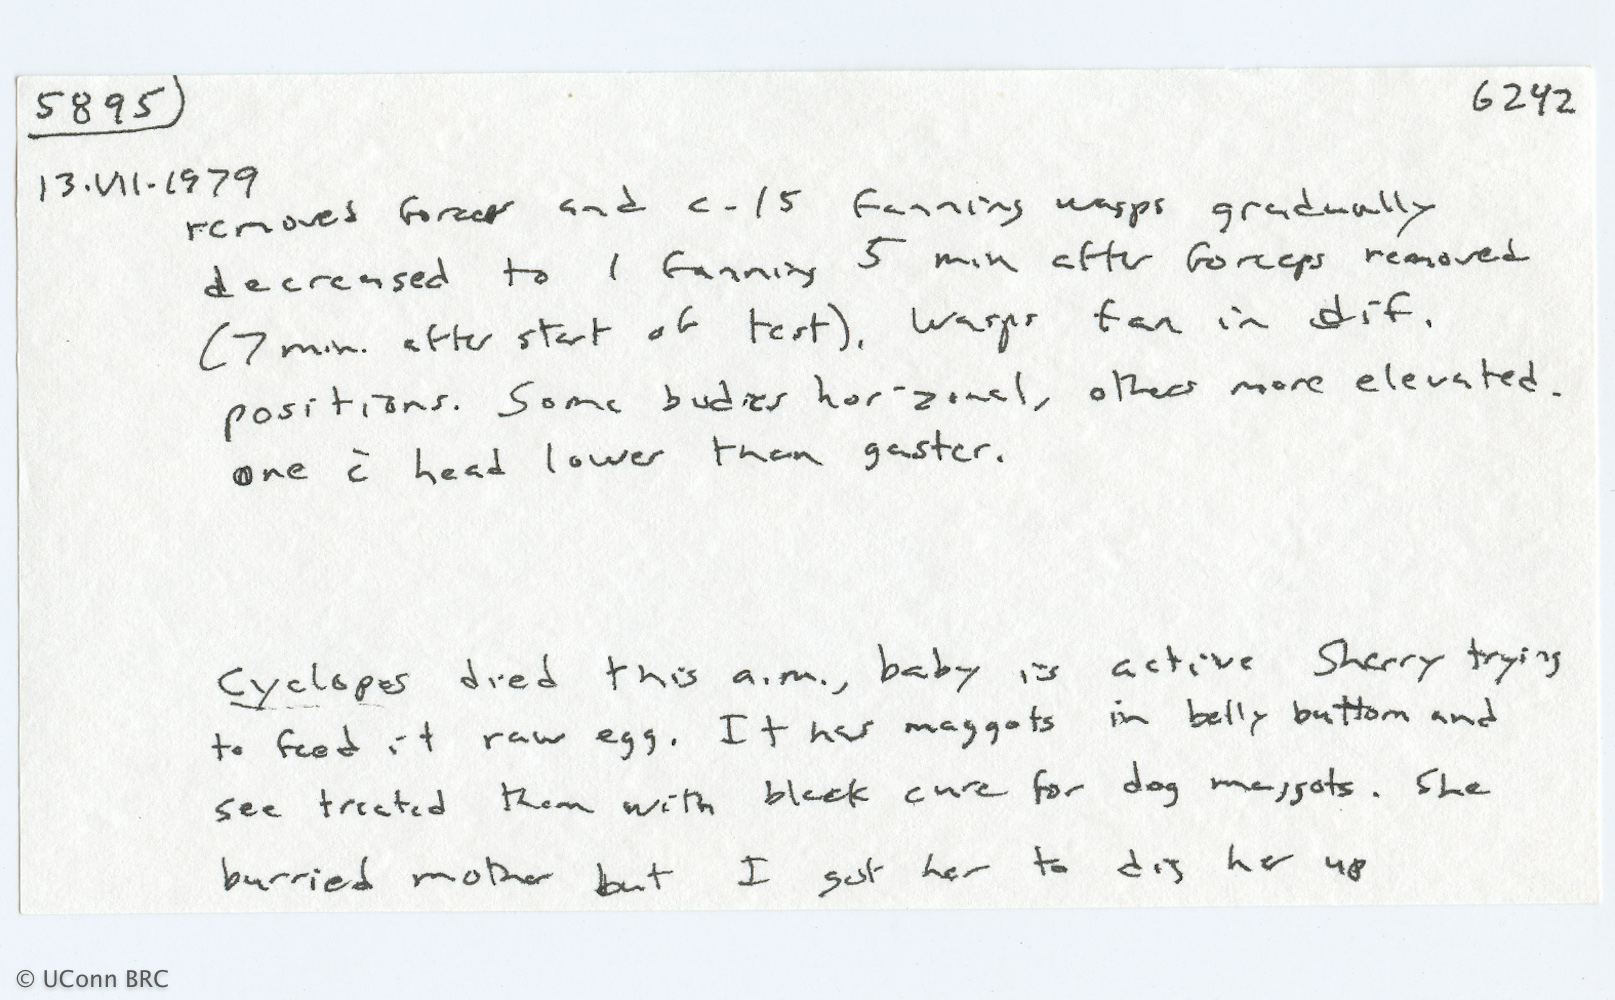 5895) 6242
13.VII.1979
removed forceps and c-15 fanning wasps gradually
decreased to 1 fanning 5 min after forceps removed
(7 min. after start of test). Wasps fan in dif.
positions. Some bodies horizonal, others more elevated.
one c̄ head lower than gaster.
Cyclopes died this a.m., baby is active Sherry trying
to feed it raw egg. It has maggots in belly buttom and
see treated them with black cure for dog maggots. She
burried mother but I got her to dig her up
© UConn BRC